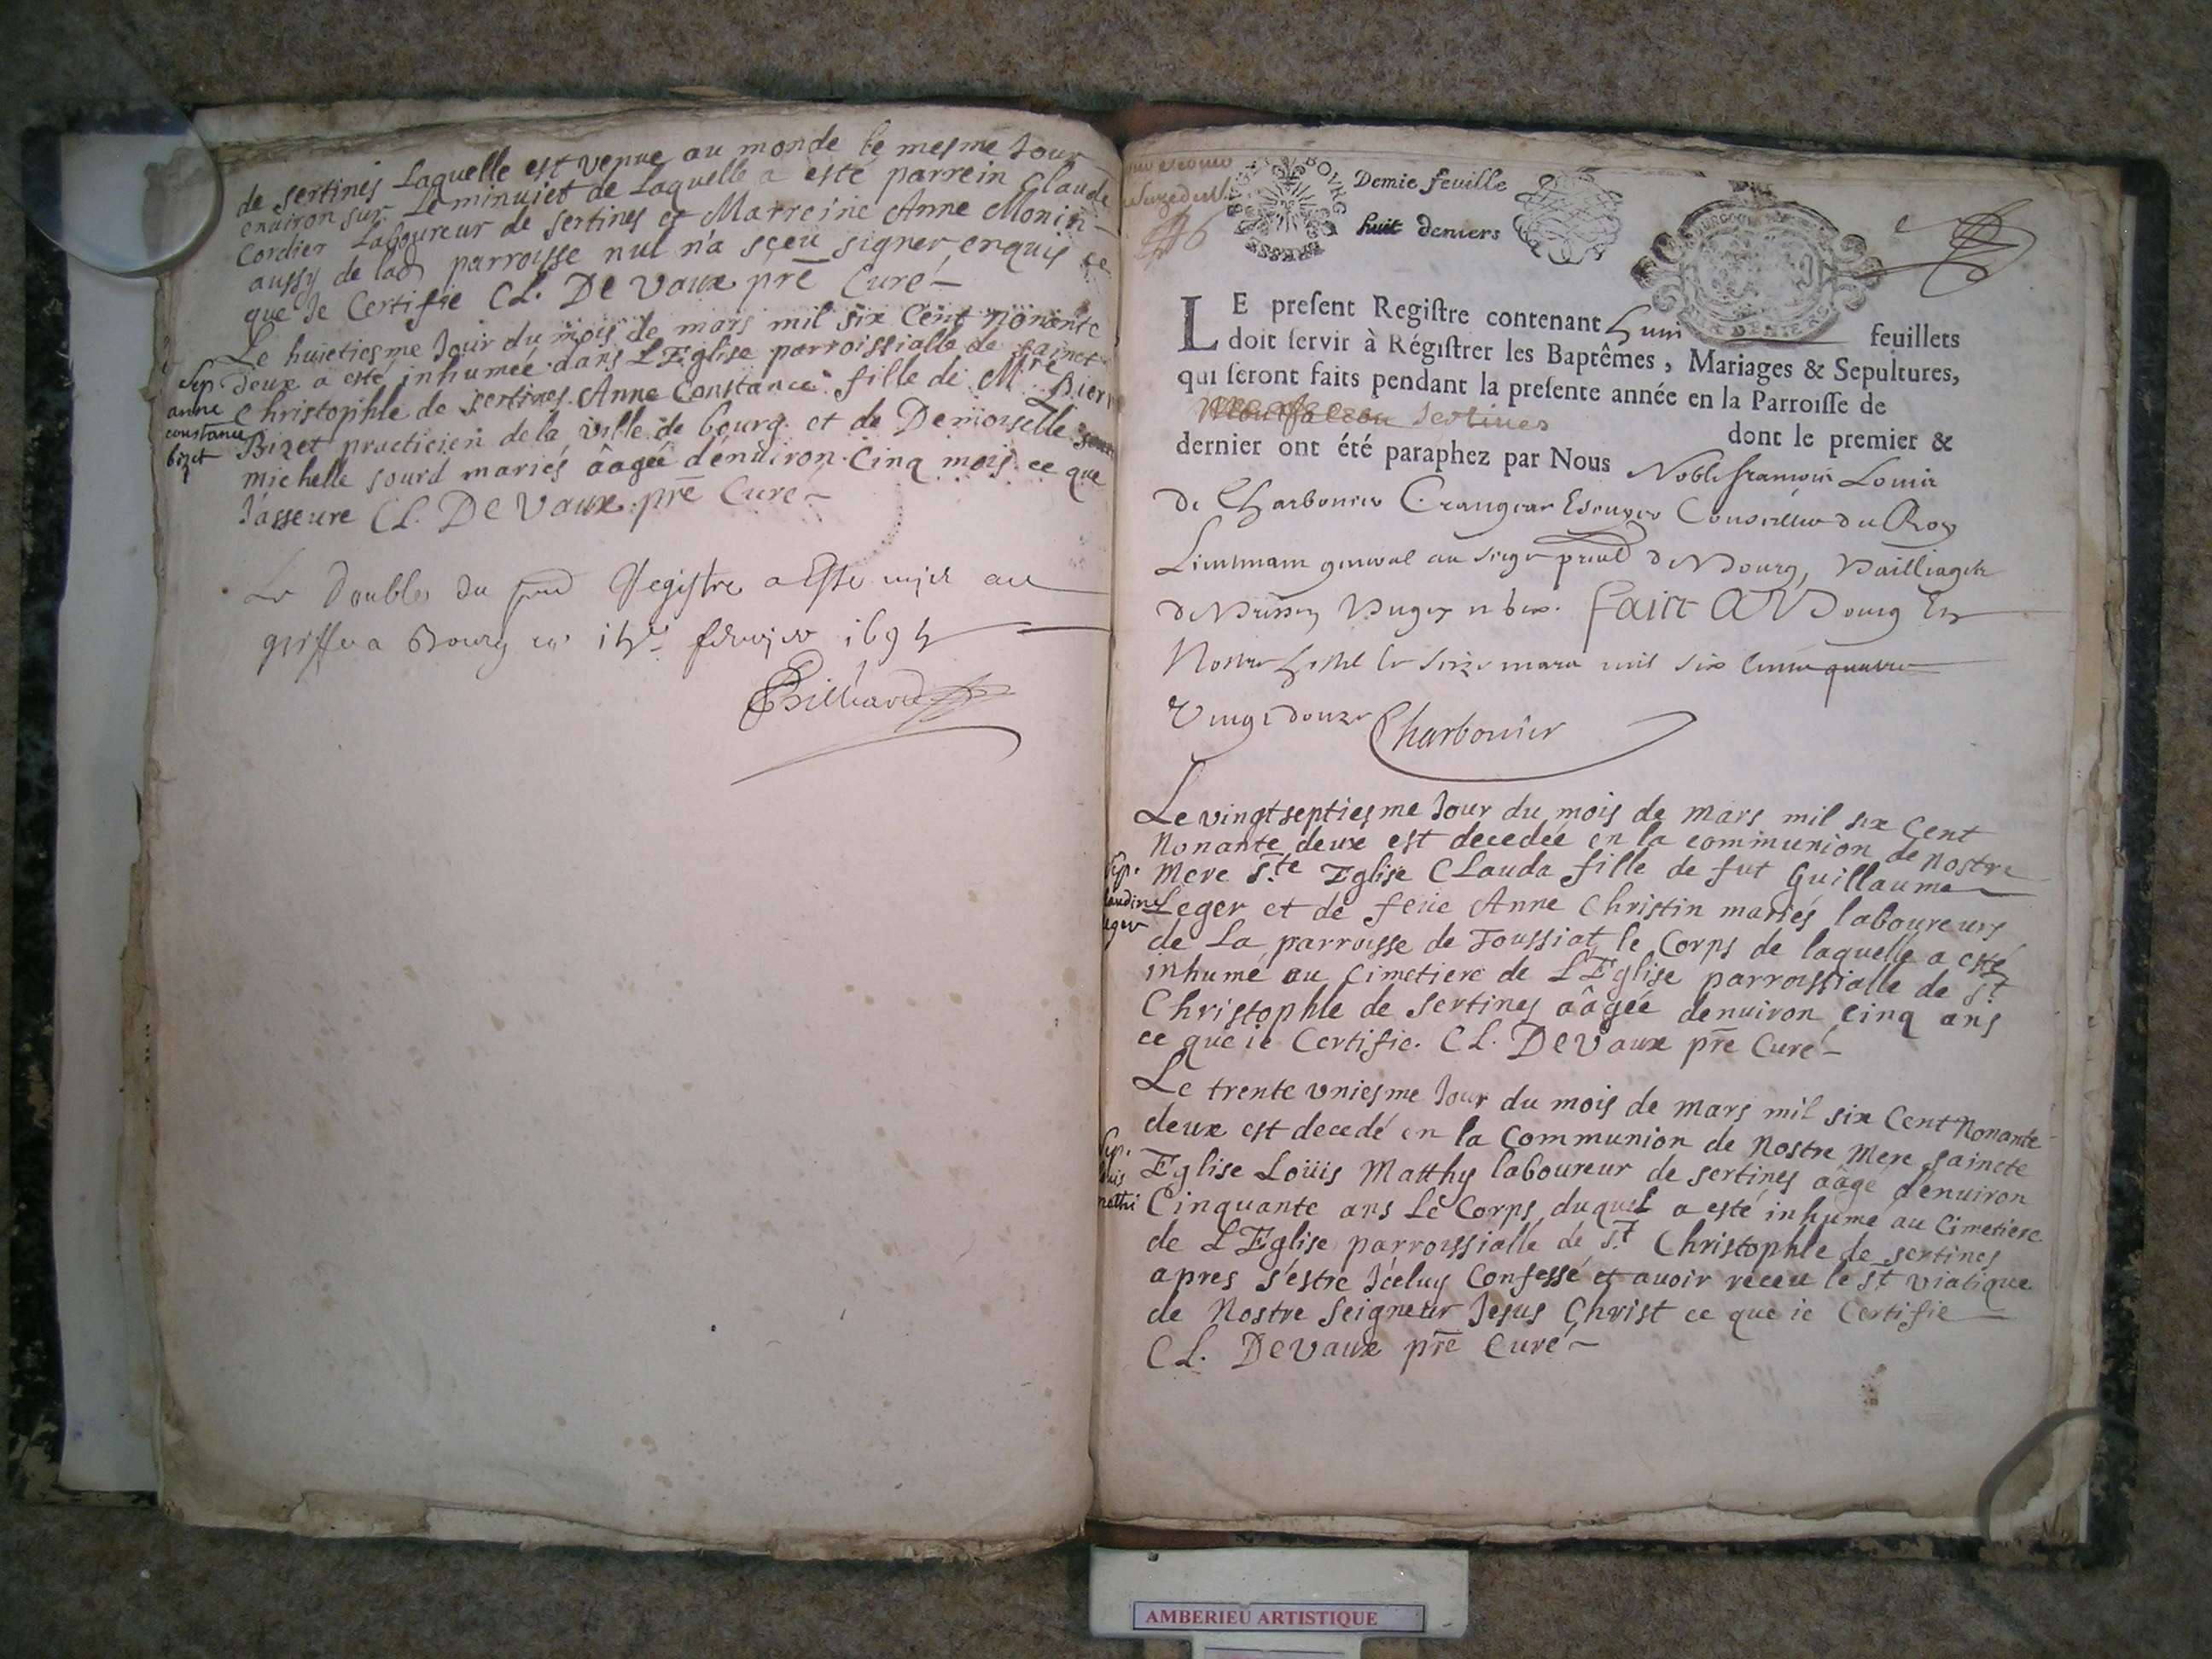 de sertines Laquelle est venue au monde le mesme Jour
environ sur Le minuict de Laquelle a esté parrein Claude
Cordier Laboureur de sertines et Marreine Anne Monin
aussy de lad parroisse nul n'a sçeu signer enquis ce
que Je Certifie CL. De Vaux pre Curé
Le huictiesme Jour du mois de mars mil six Cent nonante
deux a esté inhumée dans L'Eglise parroissialle de sainct
Christophle de sertines Anne Constance fille de Mre Pierre
Bizet practicien de la ville de bourg et de Demoiselle
michelle sourd mariés âagée d'enuiron Cinq mois ce que
J'asseure CL. De Vaux pre Curé
Sep
anne
constance
bizet
Le Double du pnt Registre a Esté mis au
greffe a Bourg ce fevrier 169
Billiard
BOURG
Demie feuille
huit deniers
LE present Registre contenant huit feuillets
doit servir à Régistrer les Baptêmes, Mariages & Sepultures,
qui seront faits pendant la presente année en la Parroisse de
Sertines dont le premier &
dernier ont été paraphez par Nous Noble françois Louis
De Charbonier Crangeac Escuyer Conseiller du Roy
Lieutenant general au siege de Bourg, Bailliage
de Bresse, Bugey Faict A Bourg En
Nostre hostel le seize mars mil six Cent quatre
Vingt douze Charbonier
Le vingt septiesme Jour du mois de mars mil six Cent
Nonante deux est decedée en la communion de nostre
Mere Ste Eglise CLauda fille de fut Guillaume
Leger et de feüe Anne Christin mariés laboureurs
de La parroisse de Toussiat le Corps de laquelle a esté
inhumé au Cimetiere de L'Eglise parroissialle de St
Christophle de sertines aâgée denuiron Cinq ans
ce que ie Certifie. CL. De Vaux pre Curé
Sep.
Le trente vniesme Jour du mois de mars mil six Cent Nonante
deux est decedé en la Communion de Nostre Mere saincte
Eglise Loüis Matthy laboureur de sertines aâgé d'enuiron
Cinquante ans Le Corps duquel a esté inhumé au Cimetiere
de L'Eglise parroissialle de St Christophle de sertines
apres s'estre Iceluy Confessé et auoir receu le St viatique
de Nostre Seigneur Jesus Christ ce que ie Certifie
CL. De Vaux pre Curé
Sep.
AMBERIEU ARTISTIQUE